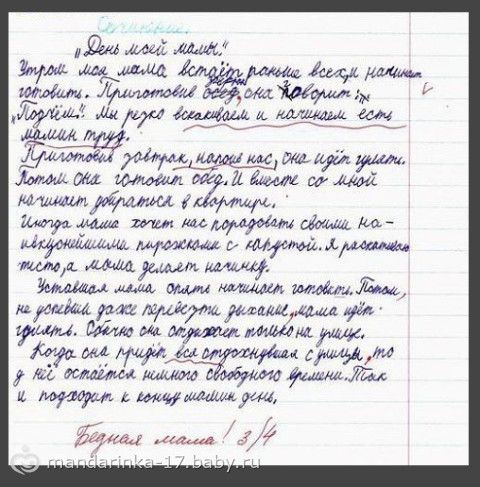 Сочинение.
„День моей мамы."
Утром моя мама встаёт раньше всех, и начинает
готовить. Приготовив обед, она говорит:
„Подъём". Мы резко вскакиваем и начинаем есть
мамин труд.
Приготовив завтрак, напоив нас, она идёт гулять.
Потом она готовит обед. И вместе со мной
начинает убираться в квартире.
Иногда мама хочет нас порадовать своими на-
ивкуснейшими пирожками с капустой. Я раскатываю
тесто, а мама делает начинку.
Уставшая мама опять начинает готовить. Потом,
не успевши даже перевезти дыхание, мама идёт
гулять. Обычно она отдыхает только на улице.
Когда она придёт вся отдохнувшая с улицы, то
у неё остаётся немного свободного времени. Так
и подходит к концу мамин день.
Бедная мама! 3/4
mandarinka-17.baby.ru